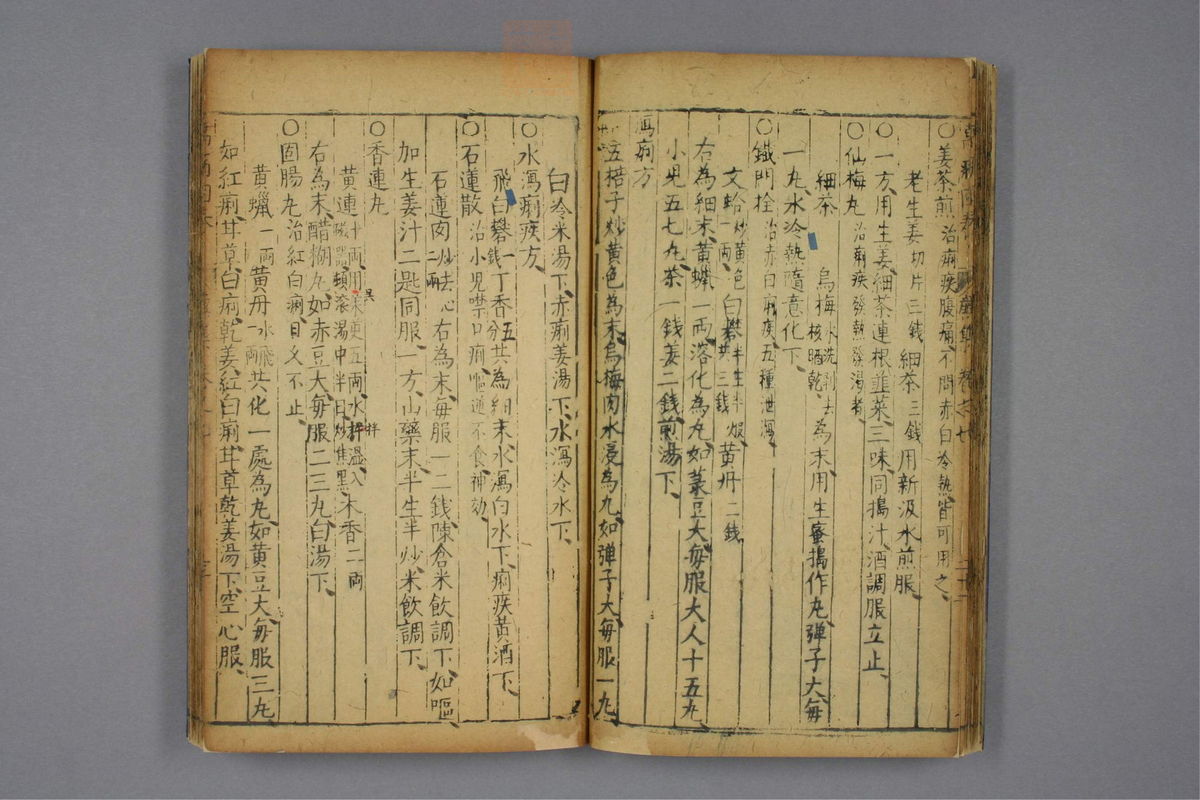 ○姜茶煎治痢疾腹痛不問赤白冷熱皆可用之
老生姜切片三錢細茶三錢用新汲水煎服
○一方用生姜細茶連根韮菜三味同搗汁酒調服立止
○仙梅丸治痢疾發熱發渴者
細茶 烏梅水洗剥去核晒乾為末用生蜜搗作丸彈子大每
一丸水冷熱隨意化下
○鐵門栓治赤白痢疾五種泄瀉
文蛤炒黄色一兩白礬半生半煅共三錢黄丹二錢
右為細末黄蠟一両溶化為丸如菉豆大每服大人十五丸
小児五七丸茶一錢姜二錢煎湯下
瀉痢方
五棓子炒黄色為末烏梅肉水浸為丸如彈子大每服一丸
白冷米湯下赤痢姜湯下水瀉冷水下
○水瀉痢疾方
飛白礬一錢丁香五分共為細末水瀉白水下痢疾黄酒下
○石蓮散治小児噤口痢嘔逆不食神効
石蓮肉炒去心二両右為末每服一二錢陳倉米飲調下如嘔
加生姜汁二匙同服一方山藥末半生半炒米飲調下
○香連丸
黄連十両用吳茱萸五両水拌湿入磁器頓滚湯中半日炒焦黒木香二両
右為末醋糊丸如赤豆大每服二三丸白湯下
○固腸丸治紅白痢日久不止
黄蠟一両黄丹水飛一両共化一處為丸如黄豆大每服三丸
如紅痢甘草白痢乾姜紅白痢甘草乾姜湯下空心服